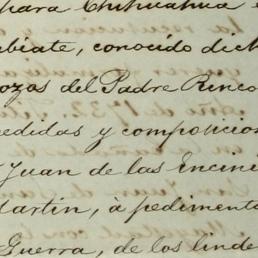 para Chihuahua e
ubiate, conocido dich
ozos del Padre Rinco
edidas y composicion
Juan de las Encini
artin, à pedimento
Guerra, de los linde